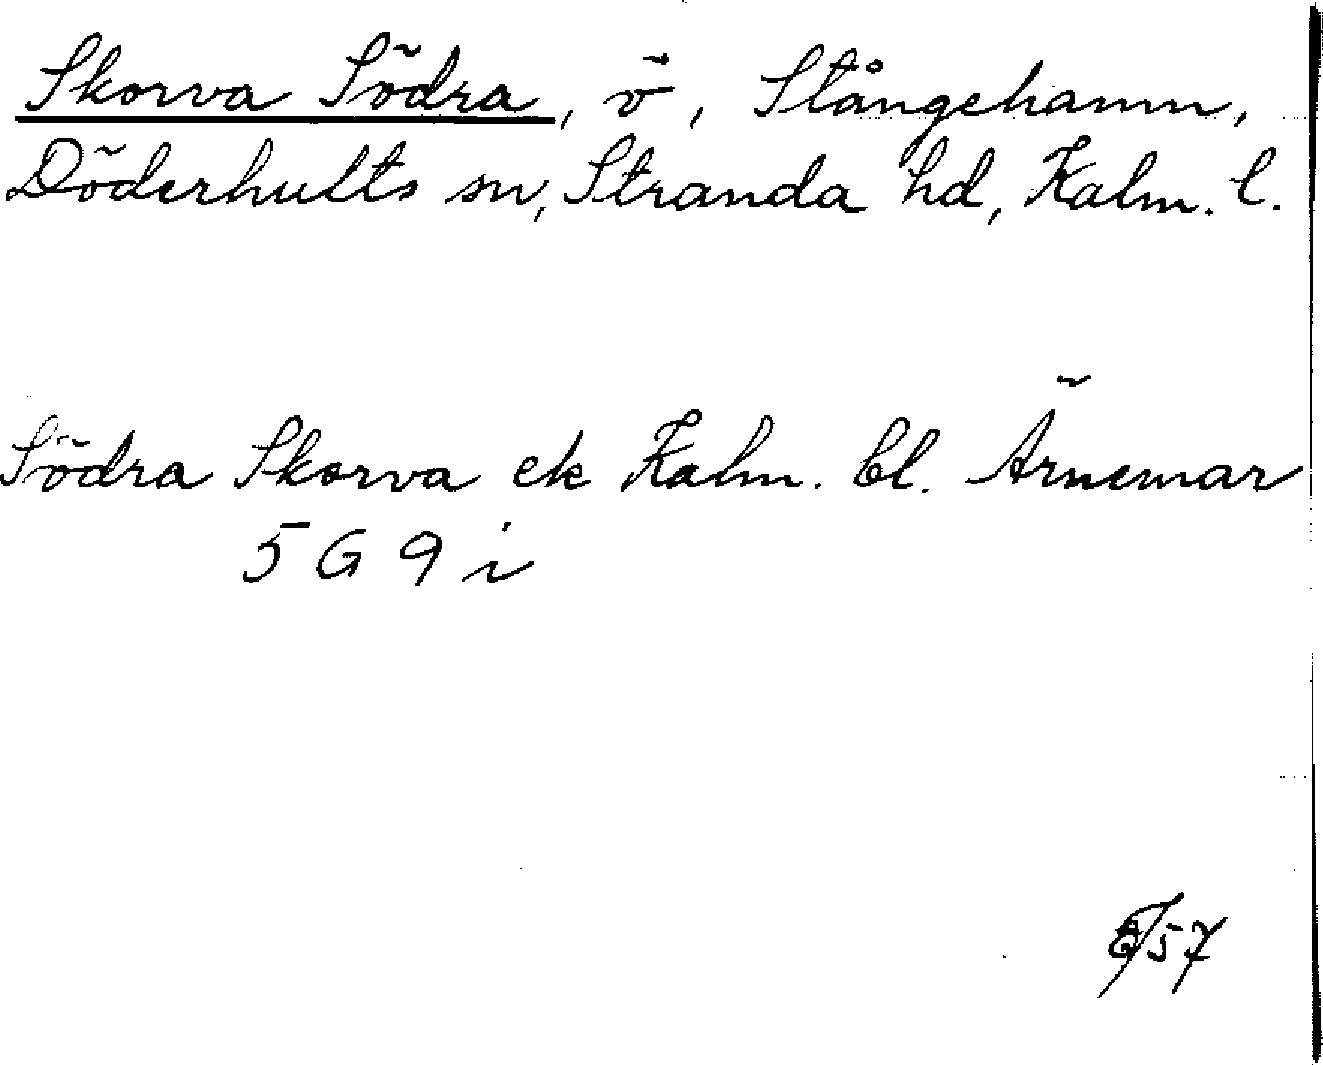 Skorva Södra, ö, Stångehamn,
Döderhults sn, Stranda hd, Kalm. l.
Södra Skorva ek Kalm. bl. Ärnemar
5 G 9 i
/57